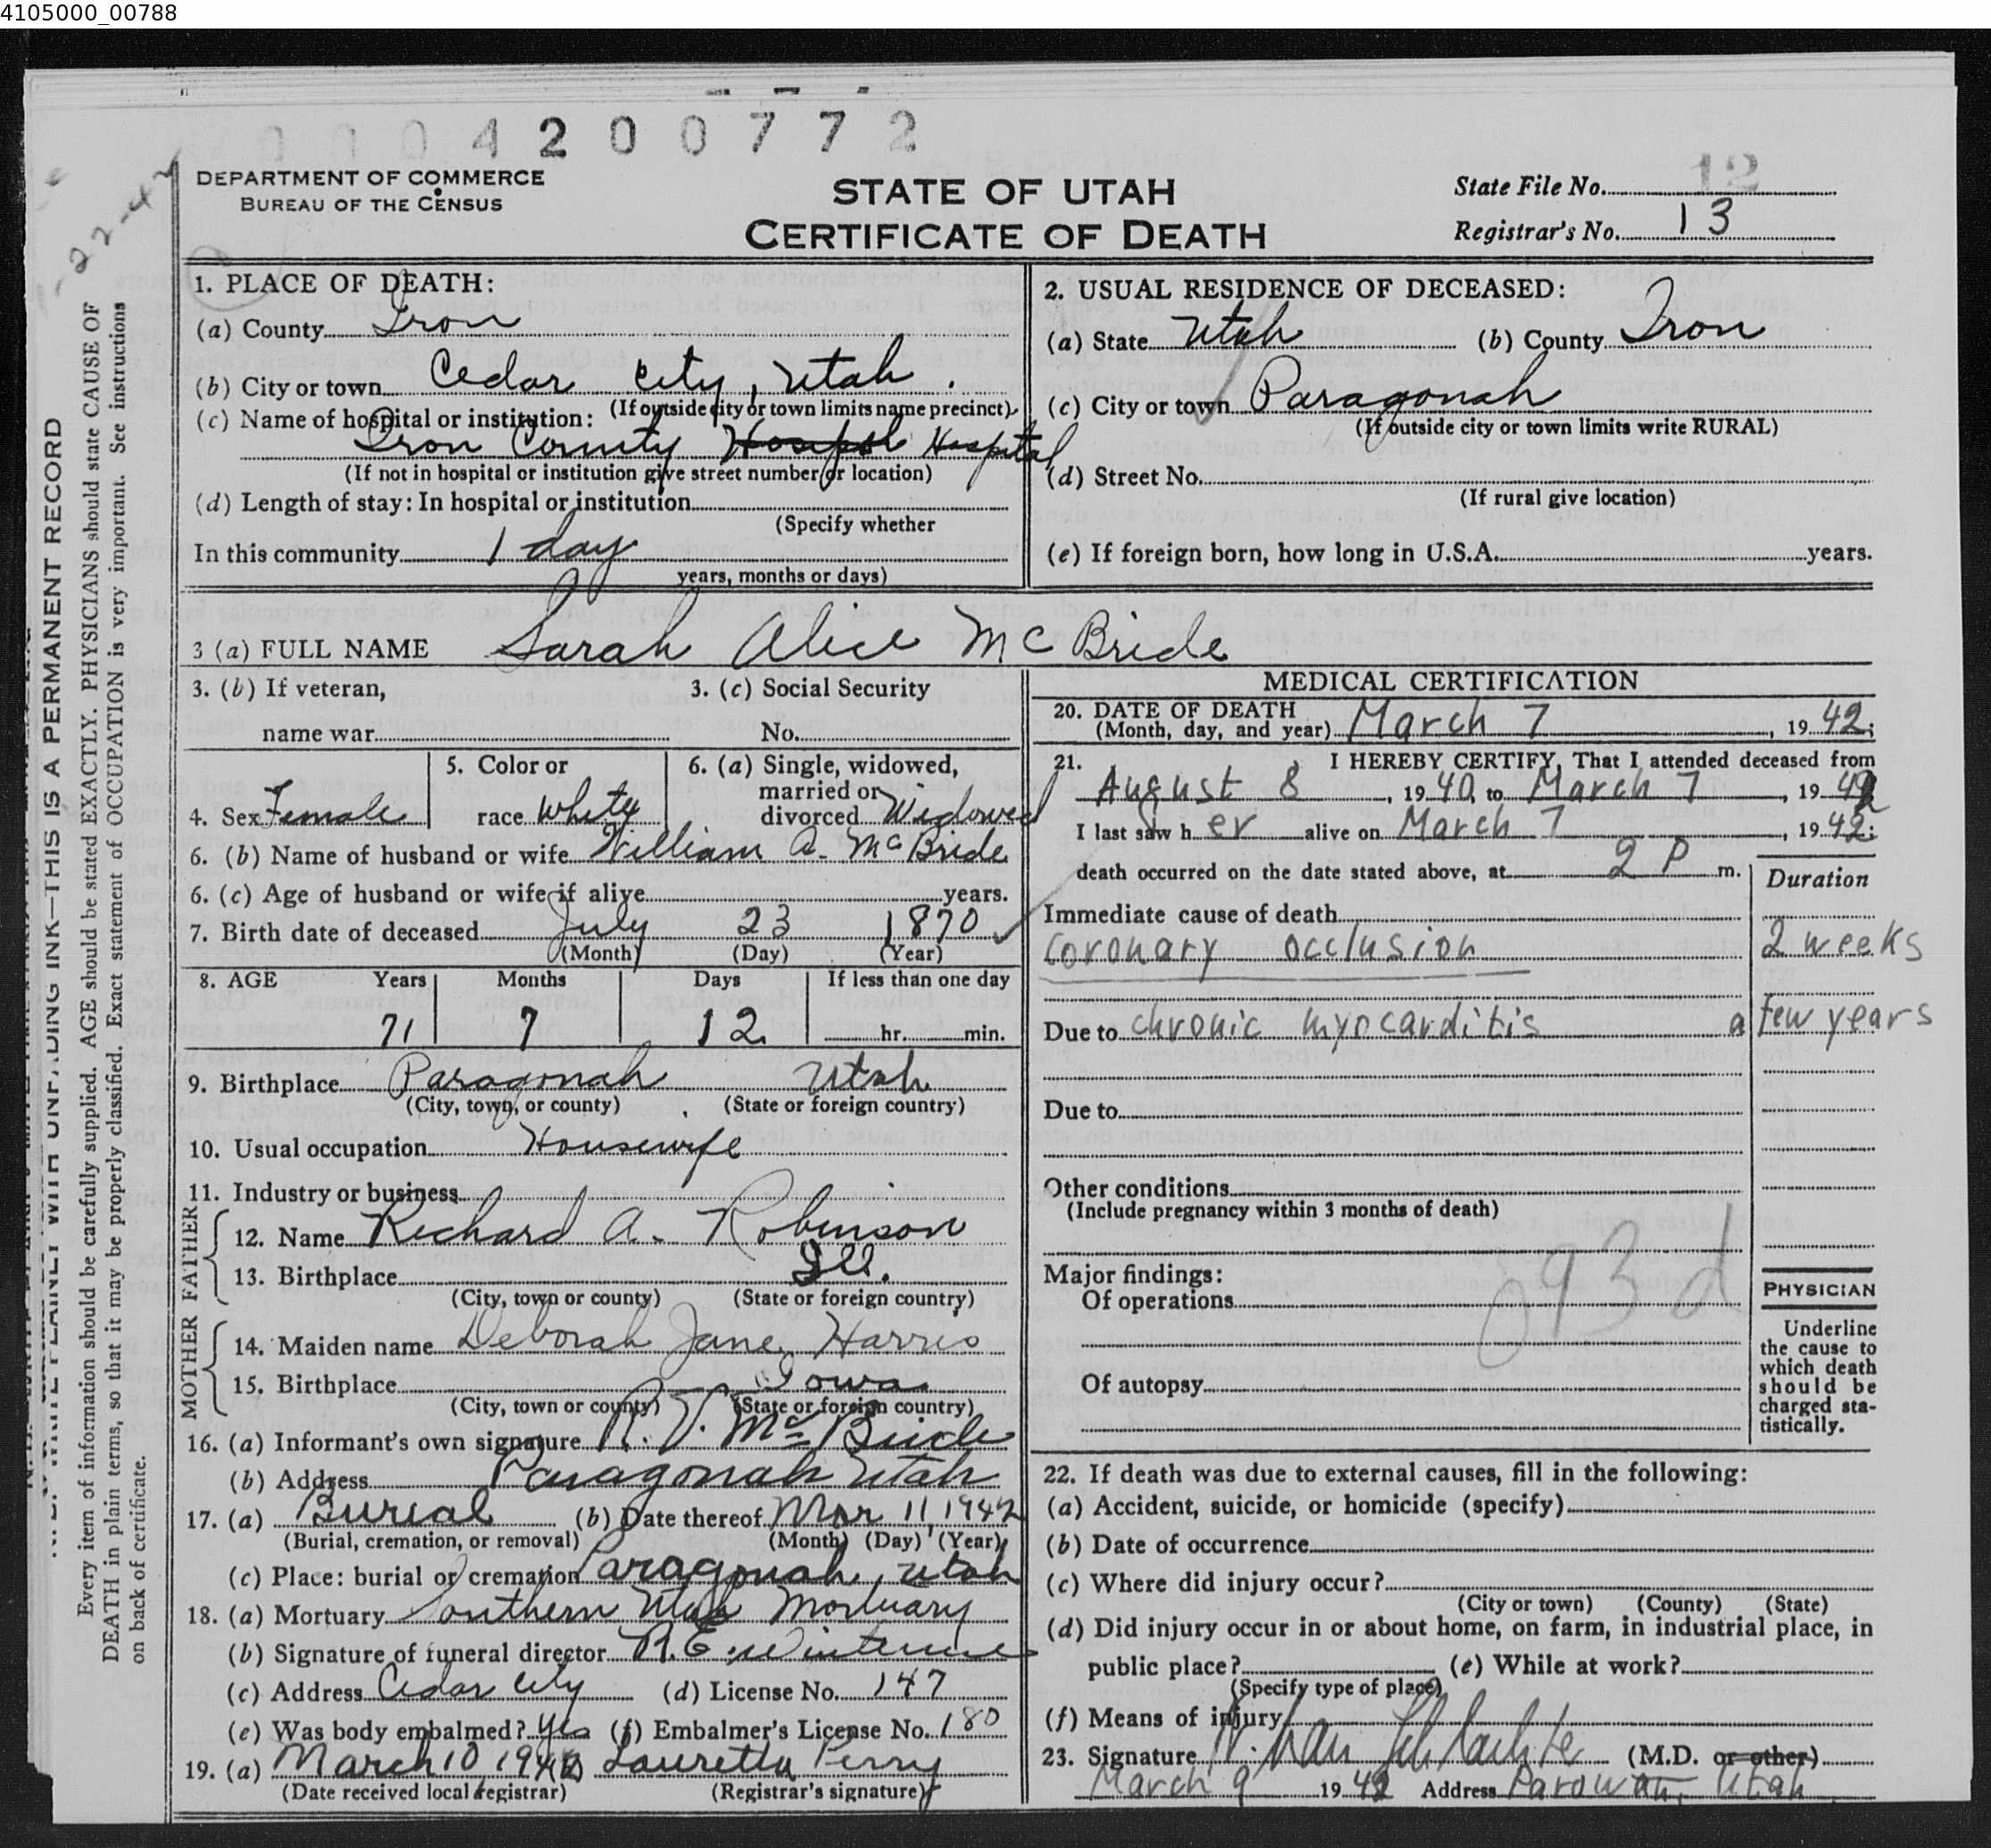 4105000_00788
0004200772
DEPARTMENT OF COMMERCE
BUREAU OF THE CENSUS
STATE OF UTAH
CERTIFICATE OF DEATH
State File No. 12
Registrar's No. 13
1. PLACE OF DEATH:
(a) County Iron
(b) City or town Cedar City, Utah.
(If outside city or town limits name precinct)
(c) Name of hospital or institution:
Iron County Hospital
(If not in hospital or institution give street number or location)
(d) Length of stay: In hospital or institution
(Specify whether
In this community 1 day
years, months or days)
2. USUAL RESIDENCE OF DECEASED:
(a) State Utah (b) County Iron
(c) City or town Paragonah
(If outside city or town limits write RURAL)
(d) Street No.
(If rural give location)
(e) If foreign born, how long in U.S.A. years.
3 (a) FULL NAME Sarah Alice McBride
3. (b) If veteran, 3. (c) Social Security
name war No.
4. Sex Female
5. Color or
race White
6. (a) Single, widowed,
married or
divorced Widowed
6. (b) Name of husband or wife William A. McBride
6. (c) Age of husband or wife if alive years.
7. Birth date of deceased July 23 1870
(Month) (Day) (Year)
8. AGE Years Months Days If less than one day
71 7 12 hr. min.
9. Birthplace Paragonah Utah
(City, town, or county) (State or foreign country)
10. Usual occupation Housewife
11. Industry or business
FATHER
12. Name Richard A. Robinson
13. Birthplace Ill.
(City, town or county) (State or foreign country)
MOTHER
14. Maiden name Deborah Jane Harris
15. Birthplace Iowa
(City, town or county) (State or foreign country)
16. (a) Informant's own signature R. V. McBride
(b) Address Paragonah Utah
17. (a) Burial (b) Date thereof Mar 11, 1942
(Burial, cremation, or removal) (Month) (Day) (Year)
(c) Place: burial or cremation Paragonah, Utah
18. (a) Mortuary Southern Utah Mortuary
(b) Signature of funeral director R. E.
(c) Address Cedar City (d) License No. 147
(e) Was body embalmed? Yes (f) Embalmer's License No. 180
19. (a) March 10 1942 Lauretta Perry
(Date received local registrar) (Registrar's signature)
MEDICAL CERTIFICATION
20. DATE OF DEATH
(Month, day, and year) March 7, 1942;
21. I HEREBY CERTIFY, That I attended deceased from
August 8, 1940, to March 7, 1942
I last saw her alive on March 7, 1942;
death occurred on the date stated above, at 2 P m.
Duration
Immediate cause of death
coronary occlusion 2 weeks
Due to chronic myocarditis a few years
Due to
Other conditions
(Include pregnancy within 3 months of death)
93d
Major findings:
Of operations
Of autopsy
PHYSICIAN
Underline
the cause to
which death
should be
charged sta-
tistically.
22. If death was due to external causes, fill in the following:
(a) Accident, suicide, or homicide (specify)
(b) Date of occurrence
(c) Where did injury occur?
(City or town) (County) (State)
(d) Did injury occur in or about home, on farm, in industrial place, in
public place? (e) While at work?
(Specify type of place)
(f) Means of injury
23. Signature (M.D. or other)
March 9 1942 Address Parowan, Utah
THIS IS A PERMANENT RECORD
Every item of information should be carefully supplied. AGE should be stated EXACTLY. PHYSICIANS should state CAUSE OF
DEATH in plain terms, so that it may be properly classified. Exact statement of OCCUPATION is very important. See instructions
on back of certificate.